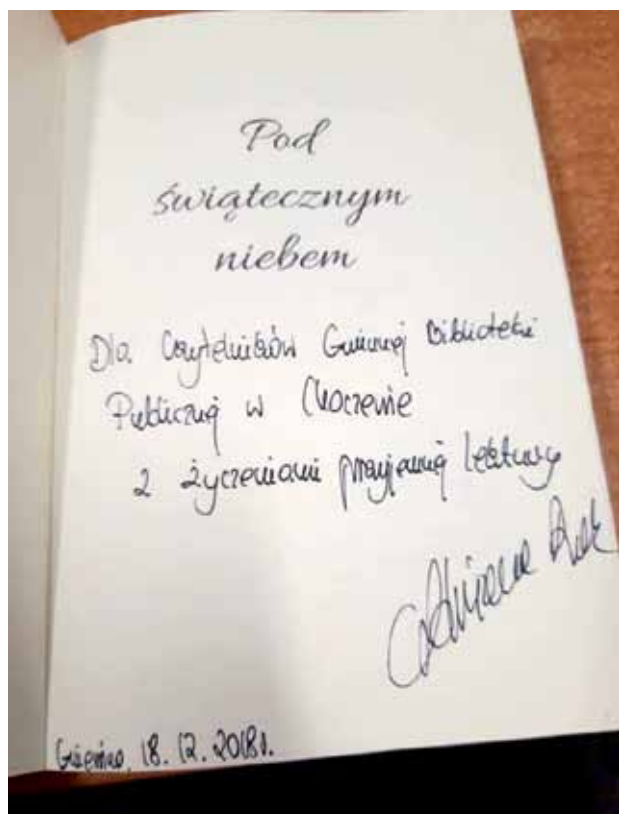 Pod
świątecznym
niebem
Dla Czytelników Gminnej Biblioteki
Publicznej w Choczewie
z życzeniami przyjemnej lektury
Adriana Rak
Gniewino, 18.12.2018r.